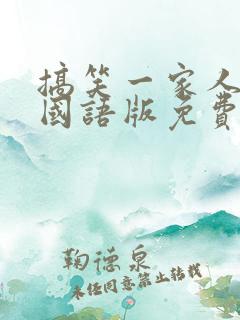 搞笑一家人
國語版免費
鞠德泉
未经同意禁止转载